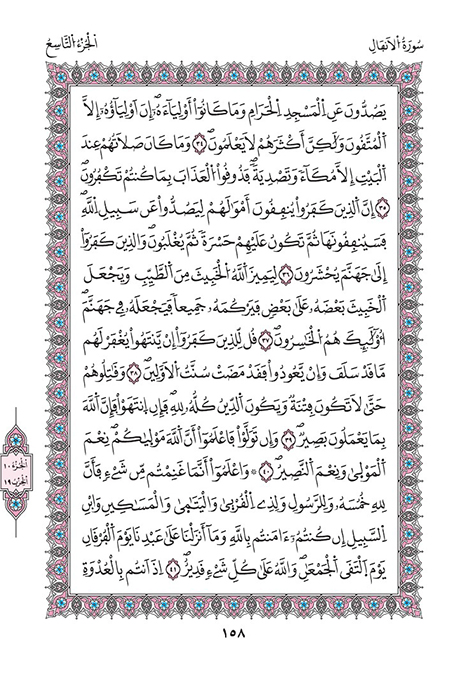 سُورَةُ الْأَنفَالِ
الْجُزْءُ التَّاسِعُ
يَصُدُّونَ عَنِ الْمَسْجِدِ الْحَرَامِ وَمَا كَانُوٓاْ أَوْلِيَآءَهُۥٓ إِنْ أَوْلِيَآؤُهُۥٓ إِلَّا
اَ۬لْمُتَّقُونَ وَلَٰكِنَّ أَكْثَرَهُمْ لَا يَعْلَمُونَ ٣٤ وَمَا كَانَ صَلَاتُهُمْ عِندَ
اَ۬لْبَيْتِ إِلَّا مُكَآءً وَتَصْدِيَةً فَذُوقُواْ الْعَذَابَ بِمَا كُنتُمْ تَكْفُرُونَ
٣٥ إِنَّ الذِينَ كَفَرُواْ يُنفِقُونَ أَمْوَٰلَهُمْ لِيَصُدُّواْ عَن سَبِيلِ اللَّهِ
فَسَيُنفِقُونَهَا ثُمَّ تَكُونُ عَلَيْهِمْ حَسْرَةً ثُمَّ يُغْلَبُونَ وَالذِينَ كَفَرُوٓاْ
إِلَىٰ جَهَنَّمَ يُحْشَرُونَ ٣٦ لِيَمِيزَ اَللَّهُ الْخَبِيثَ مِنَ الطَّيِّبِ وَيَجْعَلَ
اَ۬لْخَبِيثَ بَعْضَهُۥ عَلَىٰ بَعْضٍ فَيَرْكُمَهُۥ جَمِيعاً فَيَجْعَلَهُۥ فِي جَهَنَّمَ
أُوْلَٰٓئِكَ هُمُ الْخَٰسِرُونَ ٣٧ قُل لِّلذِينَ كَفَرُوٓاْ إِنْ يَّنتَهُواْ يُغْفَرْ لَهُم
مَّا قَدْ سَلَفَ وَإِنْ يَّعُودُواْ فَقَدْ مَضَتْ سُنَّتُ الْأَوَّلِينَ ٣٨ وَقَٰتِلُوهُمْ
حَتَّىٰ لَا تَكُونَ فِتْنَةٌ وَيَكُونَ الدِّينُ كُلُّهُۥ لِلهِ فَإِنِ اِنتَهَوْاْ فَإِنَّ اللَّهَ
بِمَا يَعْمَلُونَ بَصِيرٌ ٣٩ وَإِن تَوَلَّوْاْ فَاعْلَمُوٓاْ أَنَّ اللَّهَ مَوْلَىٰكُمْ نِعْمَ
اَ۬لْمَوْلَىٰ وَنِعْمَ النَّصِيرُ ٤٠ وَاعْلَمُوٓاْ أَنَّمَا غَنِمْتُم مِّن شَےْءٍ فَأَنَّ
لِلهِ خُمُسَهُۥ وَلِلرَّسُولِ وَلِذِي الْقُرْبَىٰ وَالْيَتَٰمَىٰ وَالْمَسَٰكِينِ وَابْنِ
اِ۬لسَّبِيلِ إِن كُنتُمُۥٓ ءَامَنتُم بِاللَّهِ وَمَآ أَنزَلْنَا عَلَىٰ عَبْدِنَا يَوْمَ الْفُرْقَانِ
يَوْمَ اَلْتَقَى الْجَمْعَٰنِ وَاللَّهُ عَلَىٰ كُلِّ شَےْءٍ قَدِيرٌ ٤١ إِذْ أَنتُم بِالْعُدْوَةِ
الجزء ١٠
الحزب ١٩
١٥٨